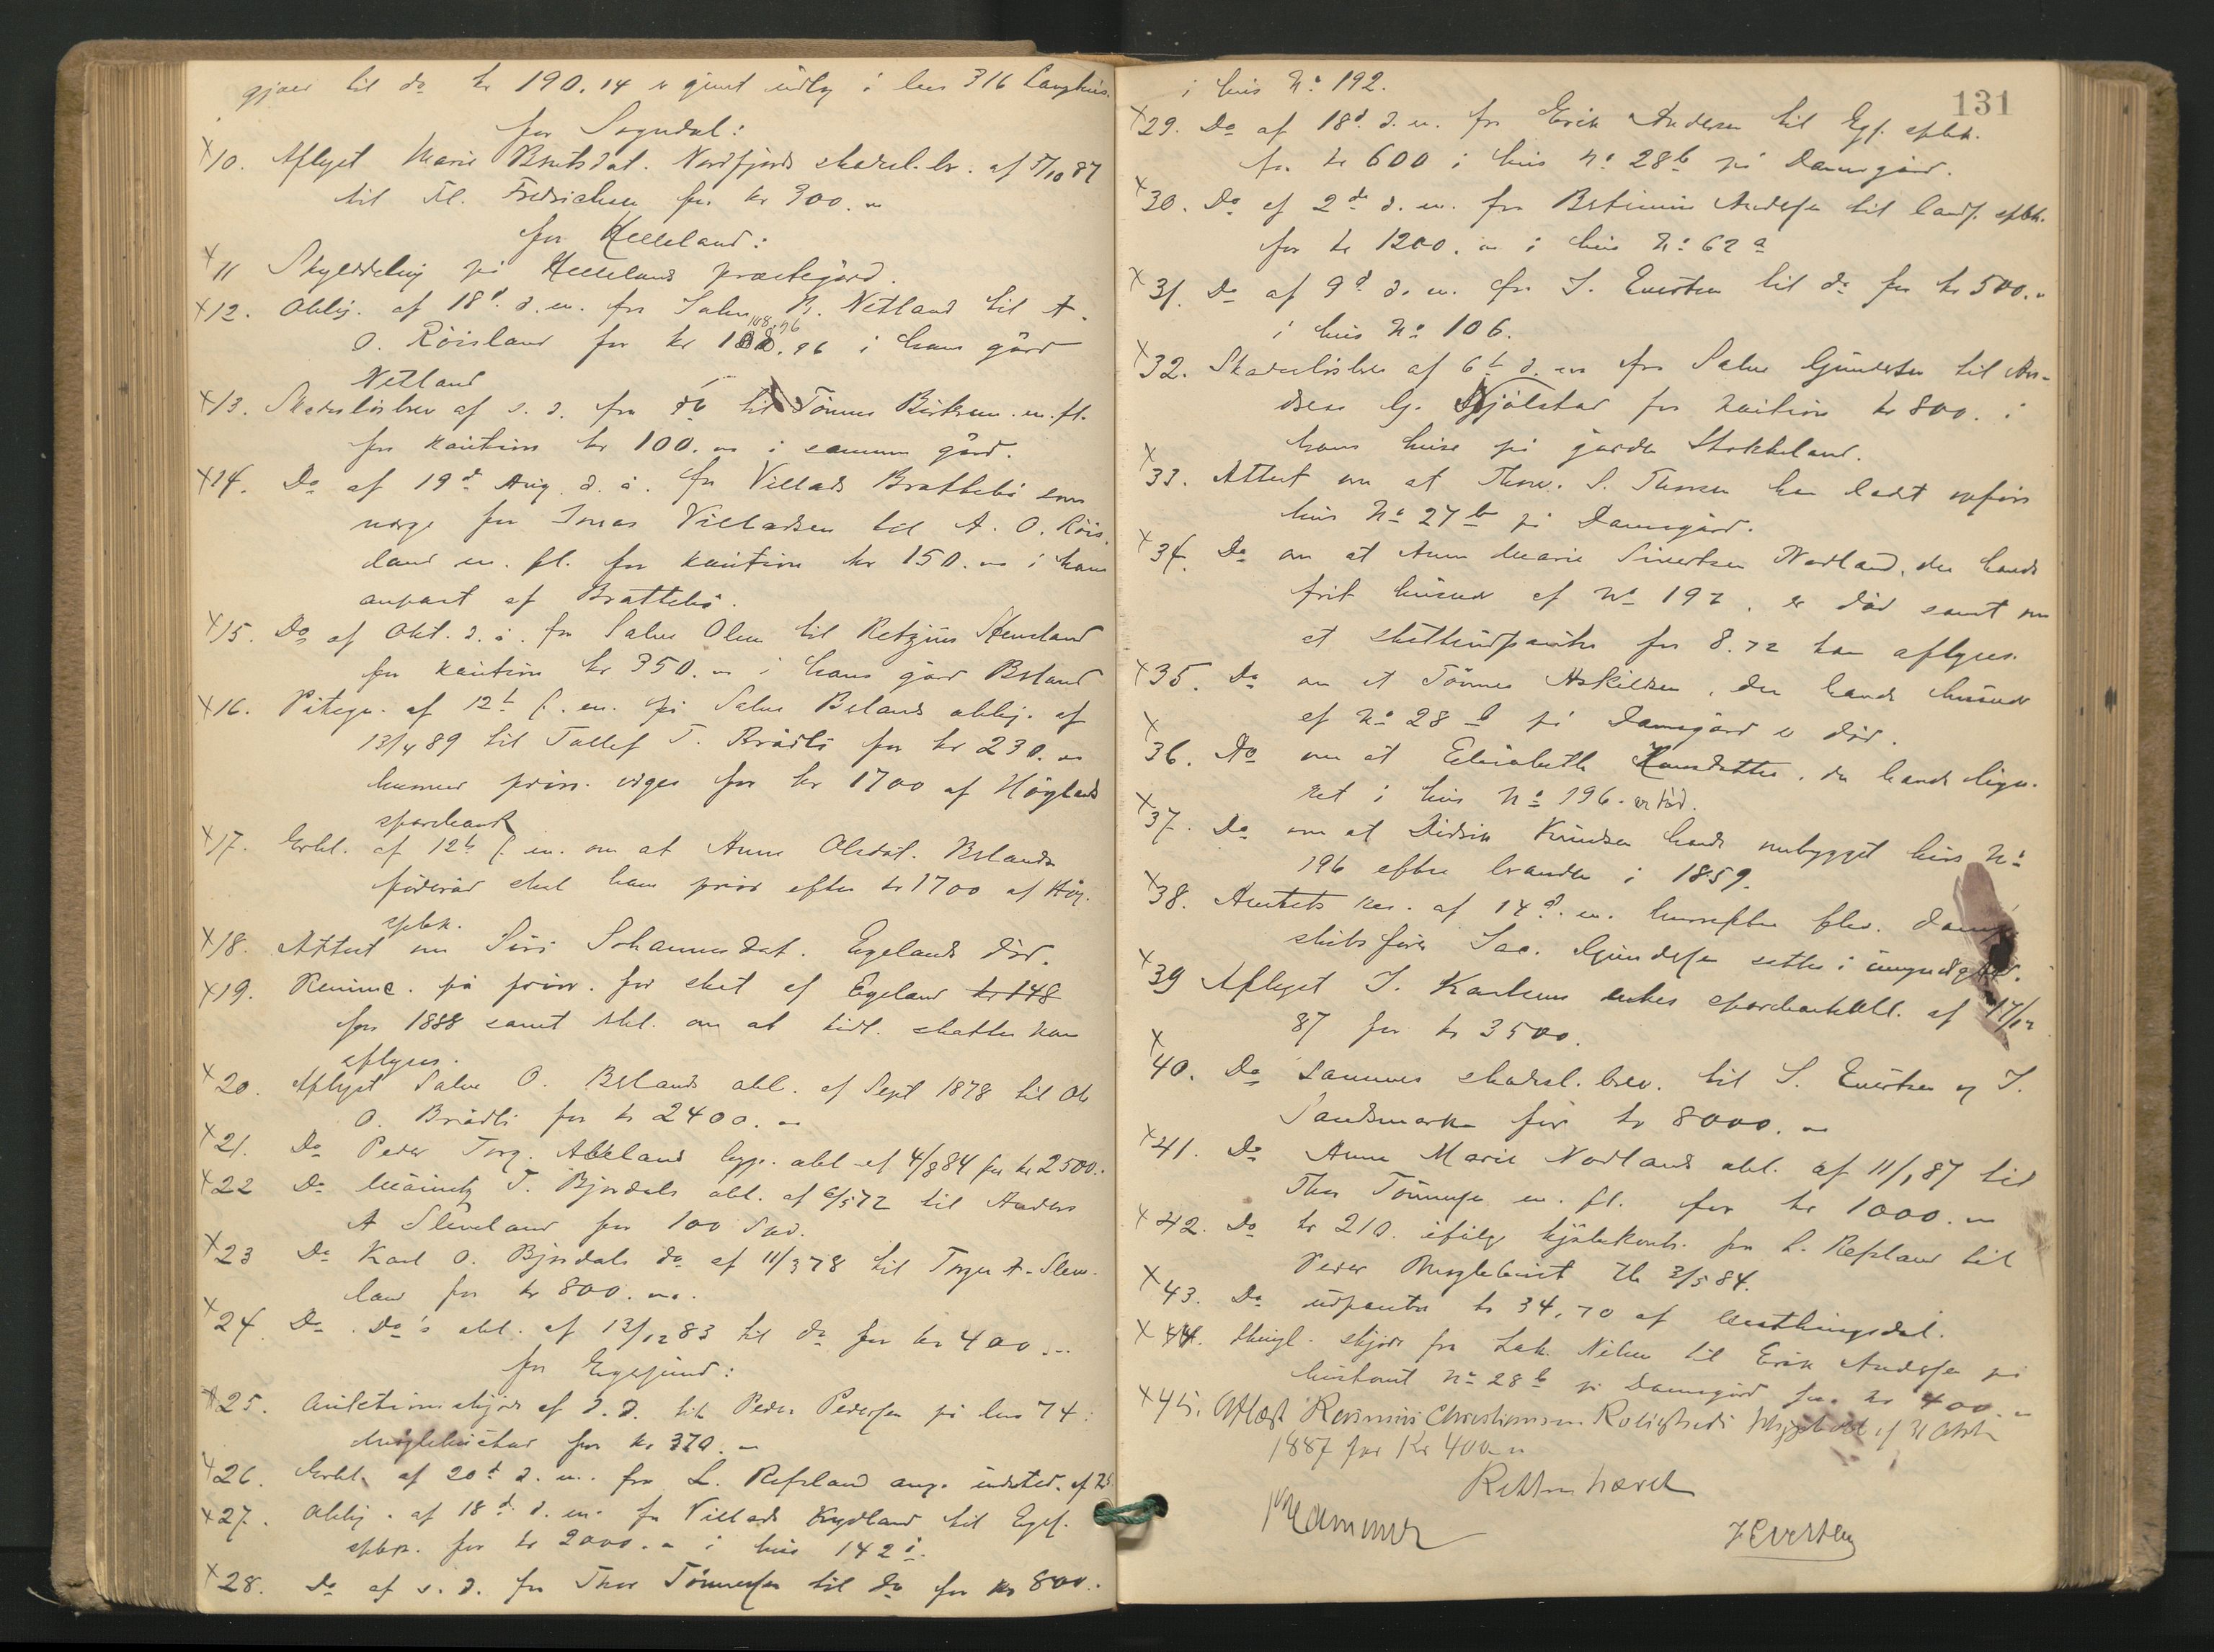 gjør til do kr 190.14 er gjort udlæg i hus 316 Langhus.
for Sogndal:
x10. Aflyst Marie Berntsdat. Nordfjords skadesl.br. af 5/10 87
til Fl. Fredrichsen for kr 300.
for Helleland:
x11 Skylddeling på Hellelands præstegård.
x12. Oblig. af 18d. d.m. fra Salve N. Netland til A.
O. Röisland for kr 108.96 i hans gård
Netland
x13. Skadesløsbrev af s.d. fra do til Tönnes Birkrem m.fl.
for kaution kr 100. i samme gård.
x14. Do af 19d Aug. d.å. fra Villads Brattebö som
værge for Jonas Villadsen til A. O. Röis-
land m.fl. for kaution kr 150. i hans
anpart af Brattebö.
x15. Do af Okt. d.å. fra Salve Olsen til Retzius
for kaution kr 350. i hans gård Bsland
x16. Påtegn. af 12t f.m. på Salve Bslands oblig. af
13/4 89 til Tollef T. Brådli for kr 230.
hvorved prior. viges for kr 1700 af Höglands
sparebank
x17. Erkl. af 12t f.m. om at Anne Olsdat. Bslands
föderåd skal have prior efter kr 1700 af Hög.
spbk.
x18. Attest om Siri Johannesdat. Egelands död.
x19. Renunc. på prior. for skat af Egeland kr 148
for 1888 samt erkl. om at tidl. skatter kan
aflyses.
x20. Aflyst Salve O. Bslands obl. af Sept 1878 til Ole
O. Brådli for kr 2400.
x21. Do Peder Torg. Abelands hyp. obl af 4/8 84 for kr 2500.
x22 Do Mauritz T. Bjordals obl. af 6/5 72 til Anders
A Sleveland for 100 Spd.
x23 Do Karl O. Bjordals do af 11/3 78 til Torger A. Sleve-
land for kr 800.
x24. Do Do's obl. af 13/12 83 til do for kr 400.
for Egersund:
x25. Auktionsskjøde af d.d. til Peder Pedersen på hus 74
for kr 370.
x26. Erkl. af 20d d.m. fra L. Refsland ang. indsted. af
x27. Oblig. af 18d d.m. fra Villads Nygland til Egers.
spbk. for kr 2000. i hus 142
x28. Do af s.d. fra Thor Tönnesen til do for kr 800.
131
i hus No 192.
x29. Do af 18d. d.m. fra Erik Andersen til Egs. spbk.
for kr 600 i hus No 28b på Damsgård.
x30. Do af 2d d.m. fra Andersen til lands. spbk.
for kr 1200. i hus No 62a
x31. Do af 9d d.m. fra J. Evertsen til do for kr 500.
i hus No 106.
x32. Skadesløsbrev af 6t d.m. fra Salve Gundersen til An-
dreas G. for kaution kr 800. i
hans huse på gården Stokkeland.
x33. Attest om at Thorv. S. Thorsen har ladet opføre
hus No 27b på Damsgård.
x34. Do om at Anne Marie Sivertsen Nordland, der havde
frit husvær af No 192, er död samt om
at skatteudpantn. for 8.72 kan aflyses.
x35. Do om at Tönnes Askildsen, der havde husvær
af No 28b på Damsgård er död.
x36. Do om at Elisabeth Hansdatter, der havde lign.
ret i hus No 196. er död.
x37. Do om at Didrik Knudsen havde ombygget hus No
196 efter branden i 1859.
x38. Amtets res. af 14d. m. hvorefter fhv. damp-
skibsförer Jac. Gundersen settes i
x39 Aflyst J. Karlsens enkes sparebankobl. af 17/12
87 for kr 3500.
x40. Do sammes skadesl. brev. til S. Evertsen og J.
Sandsmark for kr 8000.
x41. Do Anne Marie Nordlands obl. af 11/1 87 til
Thor Tönnesen m.fl. for kr 1000.
x42. Do kr 210. ifölge kjöbekontr. fra L. Refsland til
Peder Mygleb 3/5 84.
x43. Do udpantn. kr 34.70 af
x44. Thingl. skjøde fra Zak. Nilsen til Erik Andersen på
hustomt No 28b på Damsgård for kr 400.
x45. Aflæst Rasmus Christiansen Roligheds Hypobl af 31 Oktbr
1887 for Kr 400
Retten hævet
Krammer
J Evertsen